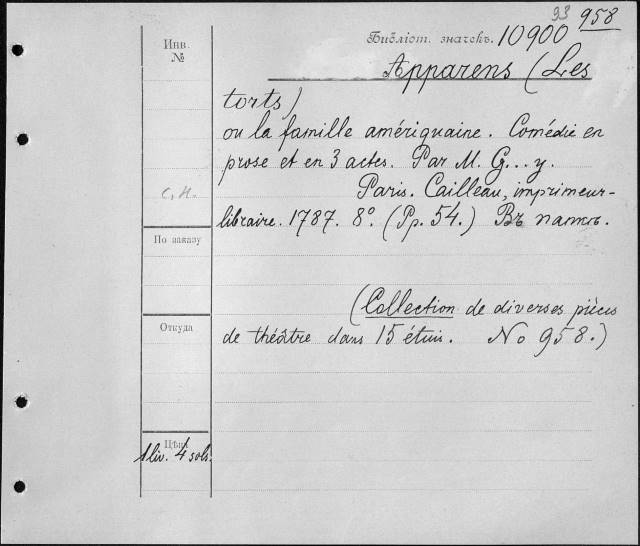 93 958
Инв.
№
Библіот. значекъ. 10900
Apparens (Les
torts)
ou la famille amériquaine. Comédie en
prose et en 3 actes. Par M. G...y.
Paris. Cailleau, imprimeur-
libraire. 1787. 8º. (Pp. 54.) Въ папкѣ.
С. Н.
По заказу
(Collection de diverses pièces
de théâtre dans 15 étuis. No 958.)
Откуда
Цѣна
1 liv. 4 sols.